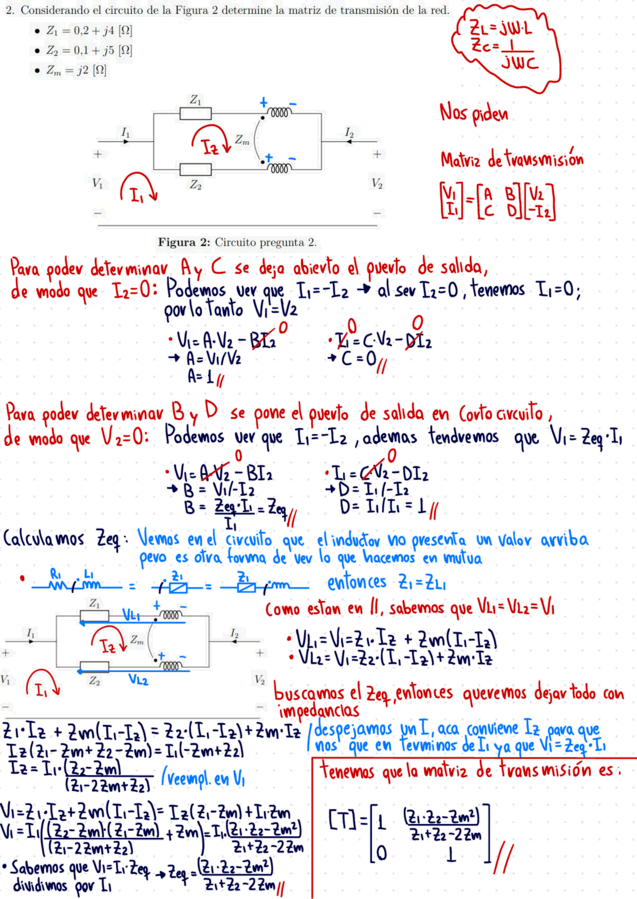 2. Considerando el circuito de la Figura 2 determine la matriz de transmisión de la red.
• Z₁ = 0,2 + j4 [Ω]
• Z₂ = 0,1 + j5 [Ω]
• Zₘ = j2 [Ω]
ZL = jW·L
Zc = 1/jWC
Z₁
+ -
I₁
I₂
Zₘ
I₂
+
+ -
+
V₁
I₁
Z₂
V₂
-
-
Figura 2: Circuito pregunta 2.
Nos piden
Matriz de transmisión
[V₁ I₁] = [A B C D][V₂ -I₂]
Para poder determinar A y C se deja abierto el puerto de salida,
de modo que I₂=0: Podemos ver que I₁=-I₂ → al ser I₂=0, tenemos I₁=0;
por lo tanto V₁=V₂
• V₁ = A·V₂ - BI₂ 0
• I₁ 0 = C·V₂ - DI₂ 0
→ A = V₁/V₂
→ C = 0//
A = 1//
Para poder determinar B y D se pone el puerto de salida en Corto circuito,
de modo que V₂=0: Podemos ver que I₁=-I₂, ademas tendremos que V₁ = Zeq·I₁
• V₁ = A·V₂ 0 - BI₂
• I₁ = C·V₂ 0 - DI₂
→ B = V₁/-I₂
→ D = I₁/-I₂
B = Zeq·I₁/I₁ = Zeq//
D = I₁/I₁ = 1//
Calculamos Zeq: Vemos en el circuito que el inductor no presenta un valor arriba
pero es otra forma de ver lo que hacemos en mutua
• R₁ L₁ = Z₁ = Z₁ entonces Z₁=ZL₁
Z₁
VL₁
+ -
I₁
I₂
Zₘ
I₂
+
+ -
+
V₁
I₁
Z₂
VL₂
V₂
-
-
Como estan en //, sabemos que VL₁=VL₂=V₁
• VL₁=V₁=Z₁·I₂ + Zm(I₁-I₂)
• VL₂=V₁=Z₂·(I₁-I₂)+Zm·I₂
buscamos el Zeq, entonces queremos dejar todo con
impedancias
Z₁·I₂ + Zm(I₁-I₂) = Z₂·(I₁-I₂)+Zm·I₂ / despejamos un I, aca conviene I₂ para que
nos que en terminos de I₁ ya que V₁=Zeq·I₁
I₂(Z₁-Zm+Z₂-Zm)=I₁(-Zm+Z₂)
I₂ = I₁·(Z₂-Zm)/(Z₁-2Zm+Z₂) / reempl. en V₁
V₁=Z₁·I₂+Zm(I₁-I₂)= I₂(Z₁-Zm)+I₁·Zm
V₁=I₁((Z₂-Zm)·(Z₁-Zm)/(Z₁-2Zm+Z₂) + Zm)=I₁(Z₁·Z₂-Zm²)/Z₁+Z₂-2Zm
• Sabemos que V₁=I₁·Zeq → Zeq = (Z₁·Z₂-Zm²)/Z₁+Z₂-2Zm//
dividimos por I₁
Tenemos que la matriz de transmisión es:
[T] = [1 (Z₁·Z₂-Zm²)/Z₁+Z₂-2Zm 0 1]//